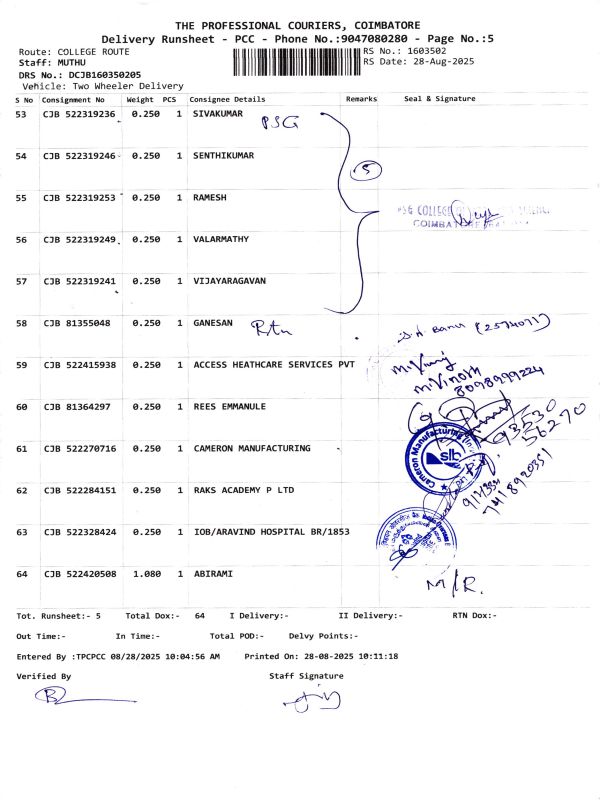 THE PROFESSIONAL COURIERS, COIMBATORE
Delivery Runsheet - PCC - Phone No.:9047080280 - Page No.:5
Route: COLLEGE ROUTE RS No.: 1603502
Staff: MUTHU RS Date: 28-Aug-2025
DRS No.: DCJB160350205
Vehicle: Two Wheeler Delivery
S No Consignment No Weight PCS Consignee Details Remarks Seal & Signature
53 CJB 522319236 0.250 1 SIVAKUMAR PSG
54 CJB 522319246 0.250 1 SENTHIKUMAR 5
55 CJB 522319253 0.250 1 RAMESH
PSG COLLEGE
56 CJB 522319249 0.250 1 VALARMATHY
57 CJB 522319241 0.250 1 VIJAYARAGAVAN
58 CJB 81355048 0.250 1 GANESAN Rtn (2574071)
59 CJB 522415938 0.250 1 ACCESS HEATHCARE SERVICES PVT
M.Vinoth
8098999224
60 CJB 81364297 0.250 1 REES EMMANULE
93530
56270
61 CJB 522270716 0.250 1 CAMERON MANUFACTURING
Cameron Manufacturing
slb
62 CJB 522284151 0.250 1 RAKS ACADEMY P LTD
7418920351
63 CJB 522328424 0.250 1 IOB/ARAVIND HOSPITAL BR/1853
64 CJB 522420508 1.080 1 ABIRAMI M/R.
Tot. Runsheet:- 5 Total Dox:- 64 I Delivery:- II Delivery:- RTN Dox:-
Out Time:- In Time:- Total POD:- Delvy Points:-
Entered By :TPCPCC 08/28/2025 10:04:56 AM Printed On: 28-08-2025 10:11:18
Verified By Staff Signature